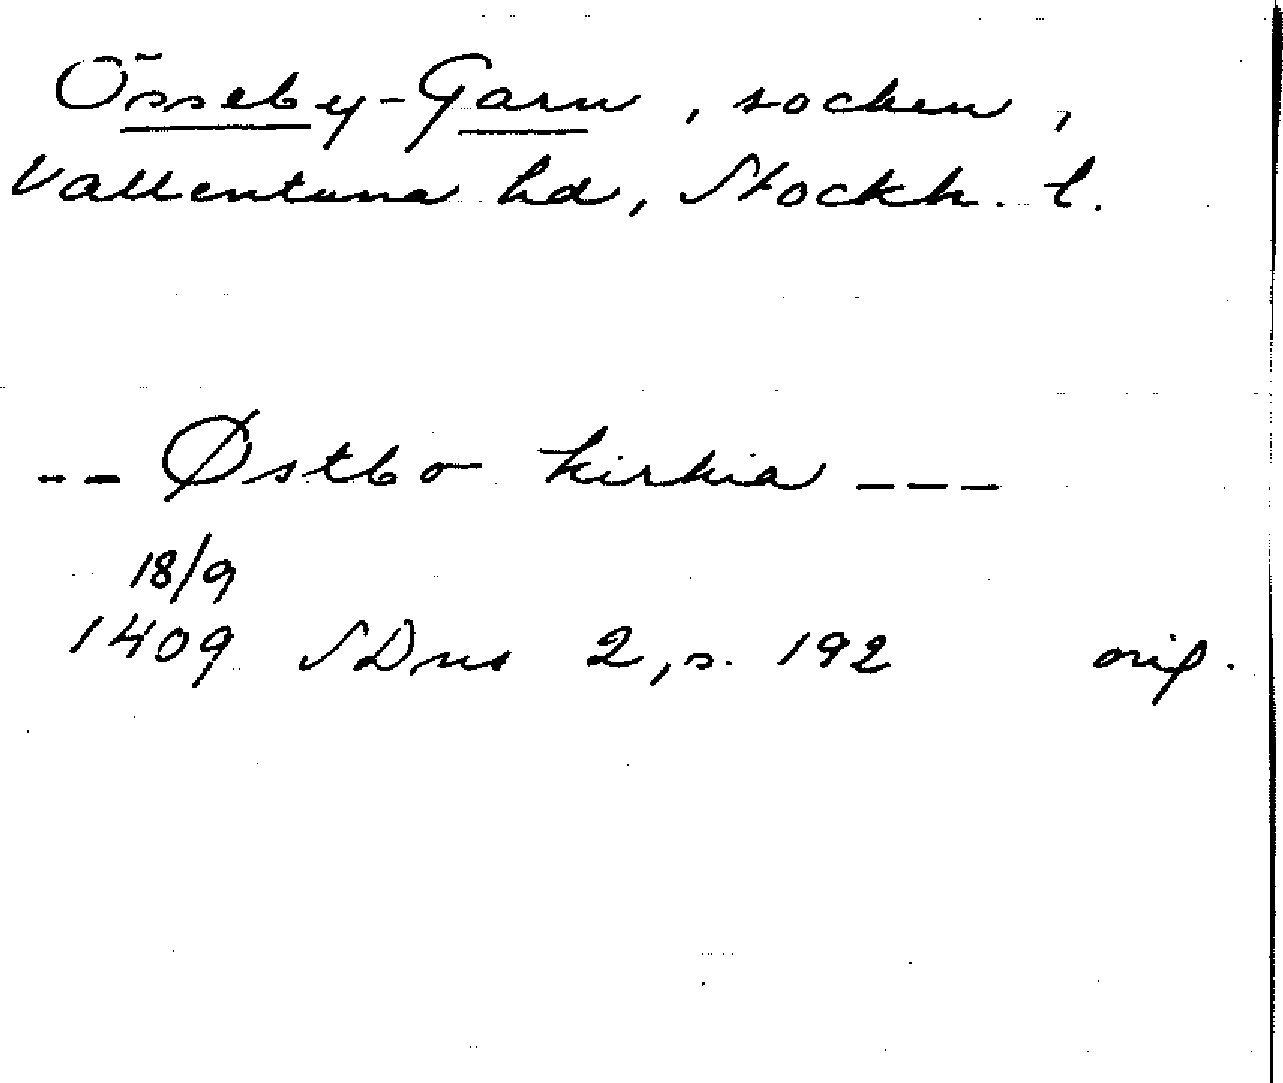 Össeby-Garn, socken,
Vallentuna hd, Stockh. l.
-- Østbo kirkia ---
18/9
1409 SDns 2, s. 192 orig.